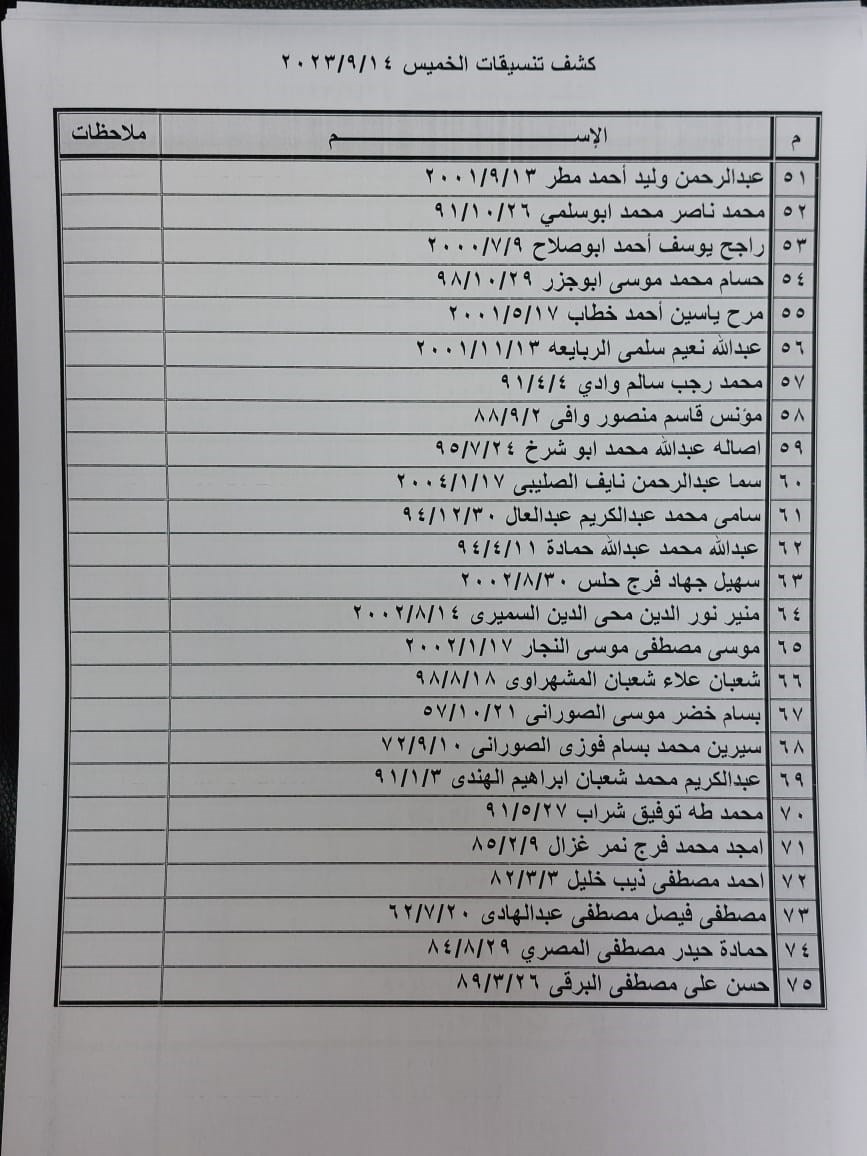 كشف تنسيقات الخميس ٢٠٢٣/٩/١٤
م الإســـــــــــم ملاحظات
٥١ عبدالرحمن وليد أحمد مطر ٢٠٠١/٩/١٣
٥٢ محمد ناصر محمد ابوسلمي ٩١/١٠/٢٦
٥٣ راجح يوسف أحمد ابوصلاح ٢٠٠٠/٧/٩
٥٤ حسام محمد موسى ابوجزر ٩٨/١٠/٢٩
٥٥ مرح ياسين أحمد خطاب ٢٠٠١/٥/١٧
٥٦ عبدالله نعيم سلمى الربايعه ٢٠٠١/١١/١٣
٥٧ محمد رجب سالم وادي ٩١/٤/٤
٥٨ مؤنس قاسم منصور وافى ٨٨/٩/٢
٥٩ اصاله عبدالله محمد ابو شرخ ٩٥/٧/٢٤
٦٠ سما عبدالرحمن نايف الصليبى ٢٠٠٤/١/١٧
٦١ سامى محمد عبدالكريم عبدالعال ٩٤/١٢/٣٠
٦٢ عبدالله محمد عبدالله حمادة ٩٤/٤/١١
٦٣ سهيل جهاد فرج حلس ٢٠٠٢/٨/٣٠
٦٤ منير نور الدين محى الدين السميرى ٢٠٠٢/٨/١٤
٦٥ موسى مصطفى موسى النجار ٢٠٠٢/١/١٧
٦٦ شعبان علاء شعبان المشهراوى ٩٨/٨/١٨
٦٧ بسام خضر موسى الصورانى ٥٧/١٠/٢١
٦٨ سيرين محمد بسام فوزى الصورانى ٧٢/٩/١٠
٦٩ عبدالكريم محمد شعبان ابراهيم الهندى ٩١/١/٣
٧٠ محمد طه توفيق شراب ٩١/٥/٢٧
٧١ امجد محمد فرج نمر غزال ٨٥/٢/٩
٧٢ احمد مصطفى ذيب خليل ٨٢/٣/٣
٧٣ مصطفى فيصل مصطفى عبدالهادى ٦٢/٧/٢٠
٧٤ حمادة حيدر مصطفى المصري ٨٤/٨/٢٩
٧٥ حسن على مصطفى البرقى ٨٩/٣/٢٦